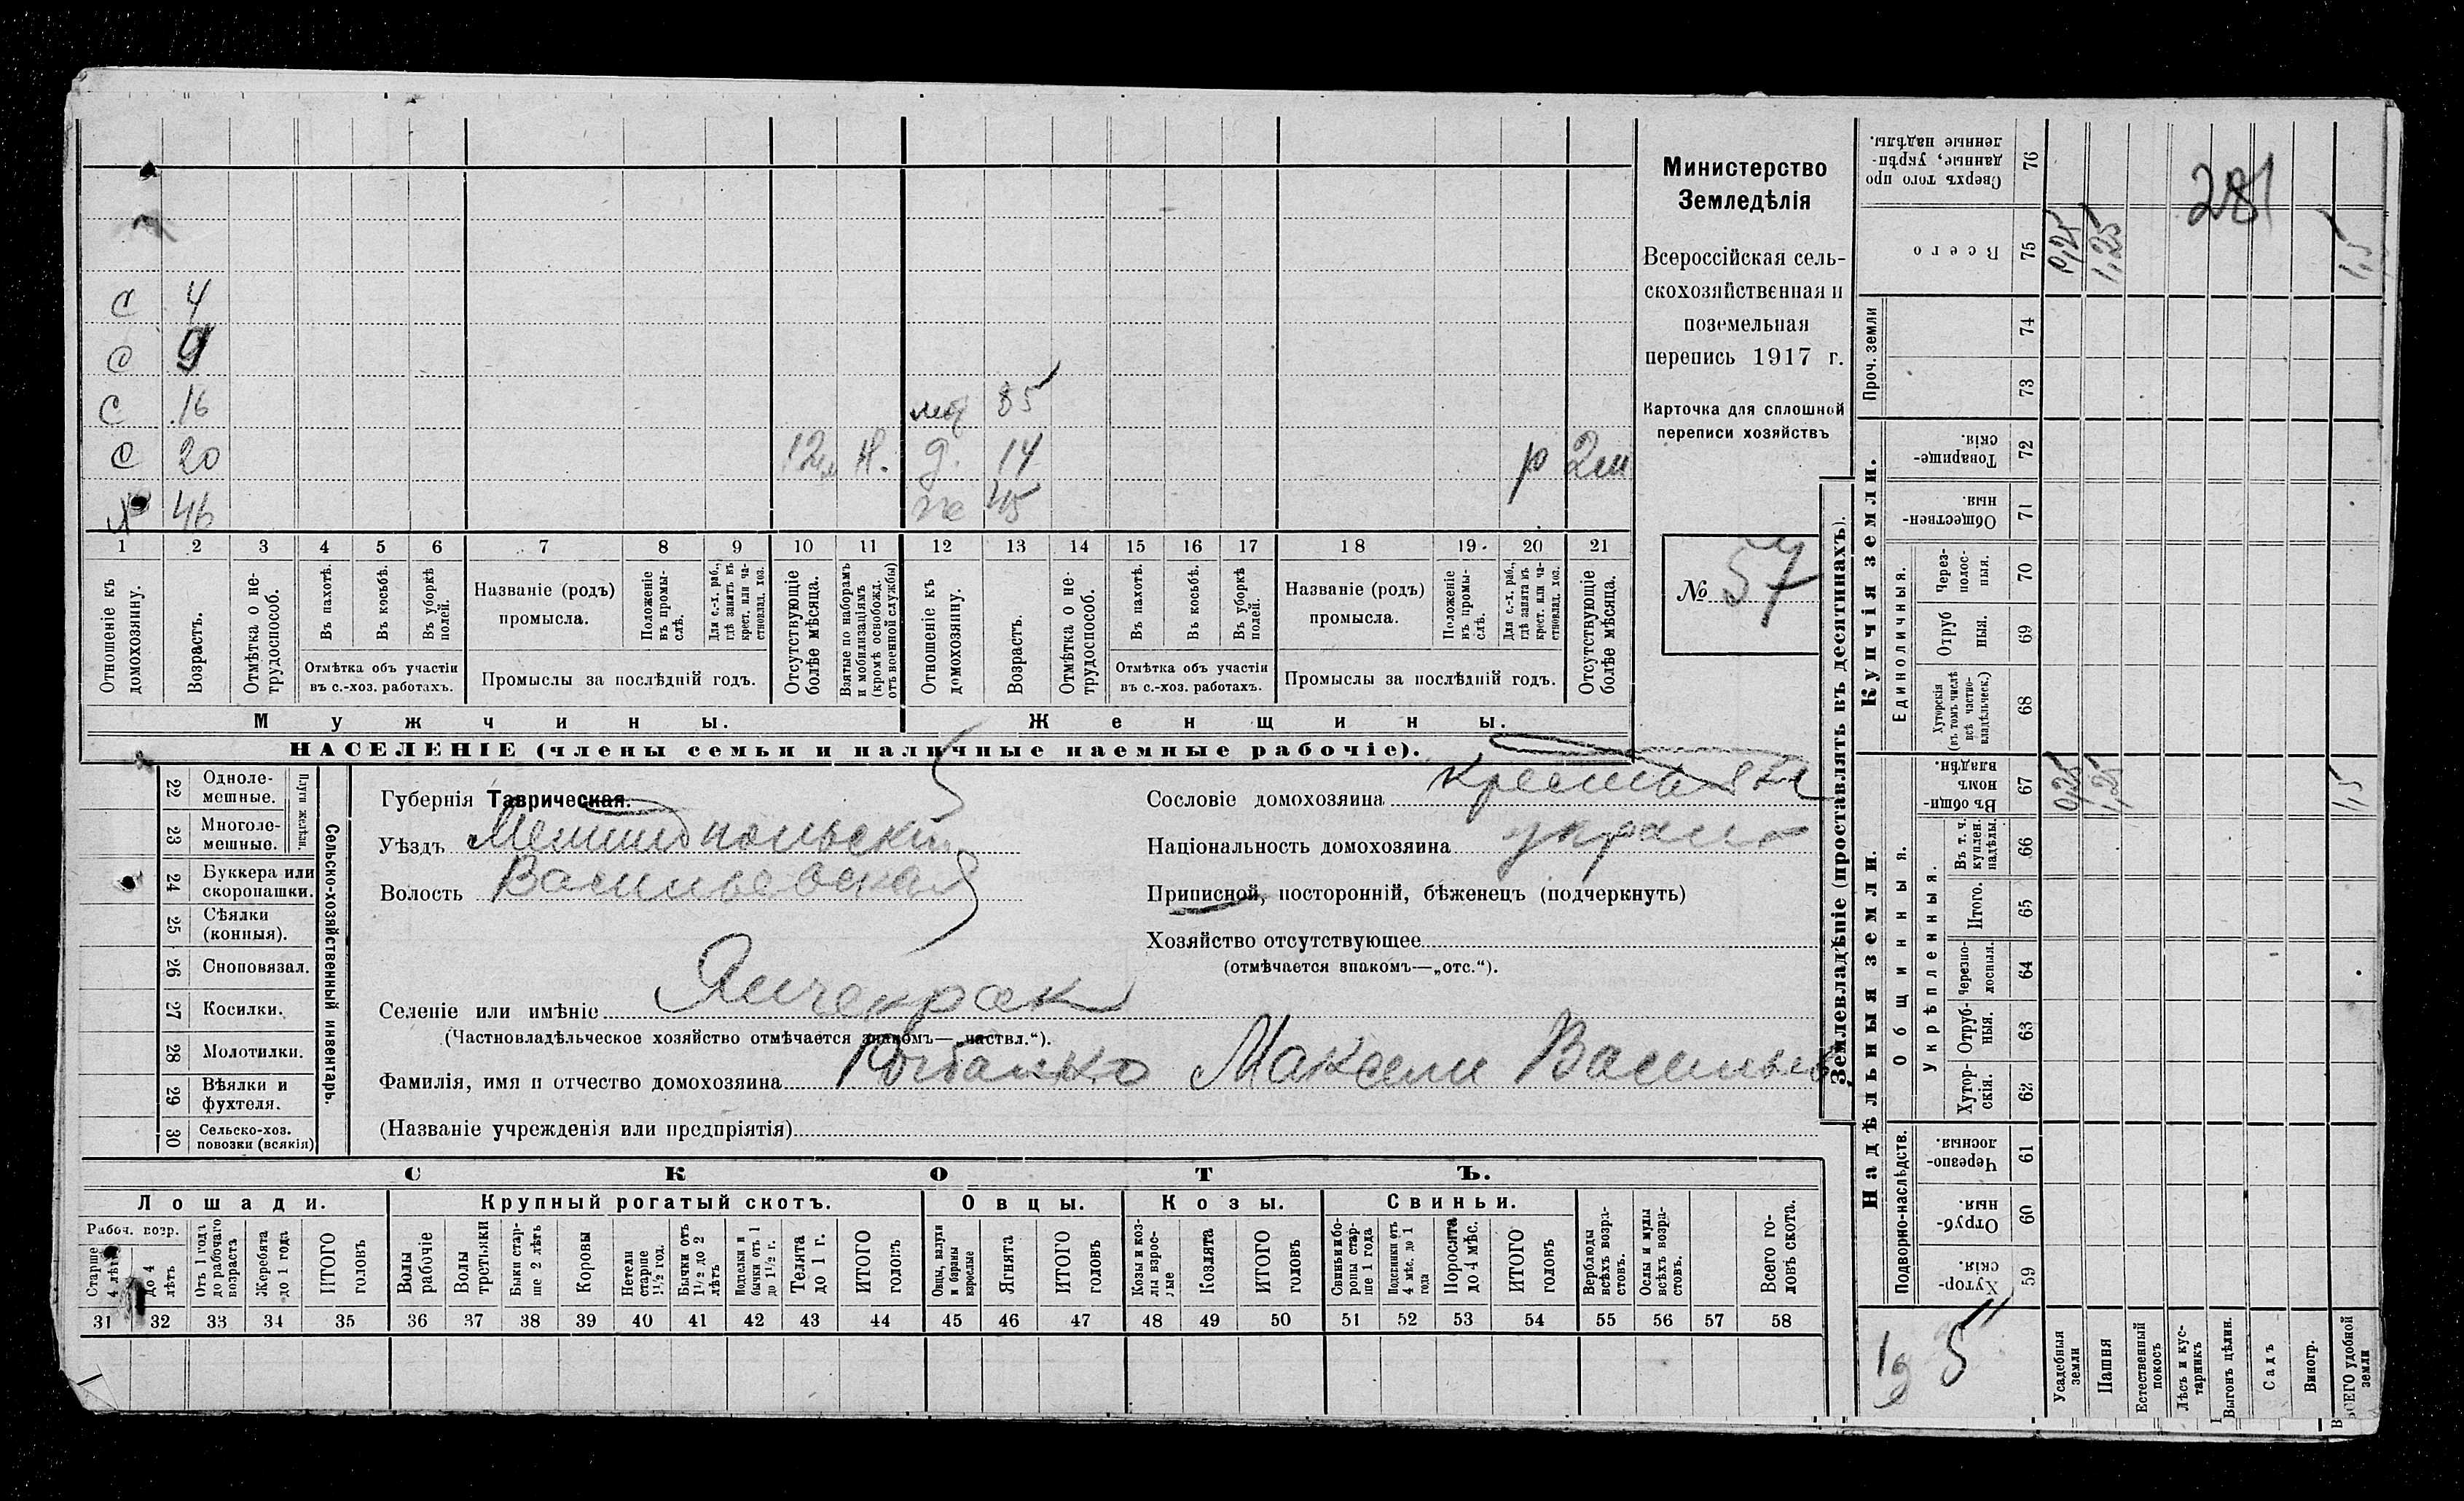 Министерство
Земледѣлія
Всероссійская сель-
скохозяйственная и
поземельная
перепись 1917 г.
Карточка для сплошной
переписи хозяйствъ
№ 57
281
С 4
С 9
С 16
С 20 12 м Н.
Х 46
85
д. 14 р 2м
же 45
1 2 3 4 5 6 7 8 9 10 11 12 13 14 15 16 17 18 19 20 21
Отношеніе къ домохозяину.
Возрастъ.
Отмѣтка о не-трудоспособ.
Въ пахотѣ.
Въ косьбѣ.
Въ уборкѣ полей.
Отмѣтка объ участіи
въ с.-хоз. работахъ.
Названіе (родъ)
промысла.
Положеніе въ промы-слѣ.
Для с.-х. раб., гдѣ занятъ въ крест. или ча-стновлад. хоз.
Промыслы за послѣдній годъ.
Отсутствующіе болѣе мѣсяца.
Взятые по наборамъ и мобилизаціямъ (кромѣ освобожд. отъ военной службы)
Отношеніе къ домохозяину.
Возрастъ.
Отмѣтка о не-трудоспособ.
Въ пахотѣ.
Въ косьбѣ.
Въ уборкѣ полей.
Отмѣтка объ участіи
въ с.-хоз. работахъ.
Названіе (родъ)
промысла.
Положеніе въ промы-слѣ.
Для с.-х. раб., гдѣ занята въ крест. или ча-стновлад. хоз.
Промыслы за послѣдній годъ.
Отсутствующіе болѣе мѣсяца.
Мужчины. Женщины.
НАСЕЛЕНІЕ (члены семьи и наличные наемные рабочіе).
22 Одноле-мешные.
23 Многоле-мешные.
Плуги желѣзн.
24 Буккера или скоропашки.
25 Сѣялки (конныя).
26 Сноповязал.
27 Косилки.
28 Молотилки.
29 Вѣялки и фухтеля.
30 Сельско-хоз. повозки (всякія)
Сельско-хозяйственный инвентарь.
Губернія Таврическая.
Уѣздъ Мелитопольскій
Волость Васильевская
Селеніе или имѣніе Янчекрак
(Частновладѣльческое хозяйство отмѣчается знакомъ—„частвл.“).
Фамилія, имя и отчество домохозяина Максим Васильев
(Названіе учрежденія или предпріятія)
Сословіе домохозяина
Національность домохозяина украин
Приписной, посторонній, бѣженецъ (подчеркнуть)
Хозяйство отсутствующее
(отмѣчается знакомъ—„отс.“).
СКОТЪ.
Лошади. Крупный рогатый скотъ. Овцы. Козы. Свиньи.
Рабоч. возр.
Старше 4 лѣтъ
до 4 лѣтъ
Отъ 1 года до рабочаго возраста
Жеребята до 1 года
ИТОГО головъ
Волы рабочіе
Волы третьяки
Быки стар-ше 2 лѣтъ
Коровы
Нетели старше 1½ год.
Бычки отъ 1½ до 2 лѣтъ
Подтелки и бычки отъ 1 до 1½ г.
Телята до 1 г.
ИТОГО головъ
Овцы, валухи и бараны взрослые
Ягнята
ИТОГО головъ
Козы и коз-лы взрос-лые
Козлята
ИТОГО головъ
Свиньи и бо-ровы стар-ше 1 года
Подсвинки отъ 4 мѣс. до 1 года
Поросята до 4 мѣс.
ИТОГО головъ
Верблюды всѣхъ возра-стовъ.
Ослы и мулы всѣхъ возра-стовъ.
Всего го-ловъ скота.
31 32 33 34 35 36 37 38 39 40 41 42 43 44 45 46 47 48 49 50 51 52 53 54 55 56 57 58
Землевладѣніе (проставлять въ десятинахъ).
Купчія земли.
Надѣльныя земли.
Сверхъ того про данные, укрѣп-ленные надѣлы. 76
Всего 75 0,25 1,25 1,5
Проч. земли 74 73
Товарище-скія. 72
Обществен-ныя. 71
Единоличныя.
Через-полос-ныя. 70
Отруб ныя. 69
Хуторскія (въ томъ числѣ всѣ частно-владѣльческ.) 68
Въ общи-номъ владѣн. 67 0,25 1,25 1,5
Общинныя.
Укрѣпленныя.
Въ т. ч. куплен. надѣлы. 66
Итого. 65
Черезпо-лосныя. 64
Отруб-ныя. 63
Хутор-скія. 62
Подворно-наслѣдств.
Черезпо-лосныя. 61
Отруб-ныя. 60
Хутор-скія. 59
Усадебныя земли
Пашня
Естественный покосъ
Лѣсъ и кус-тарникъ
Выгонъ цѣлин.
Садъ
Виногр.
ВСЕГО удобной земли